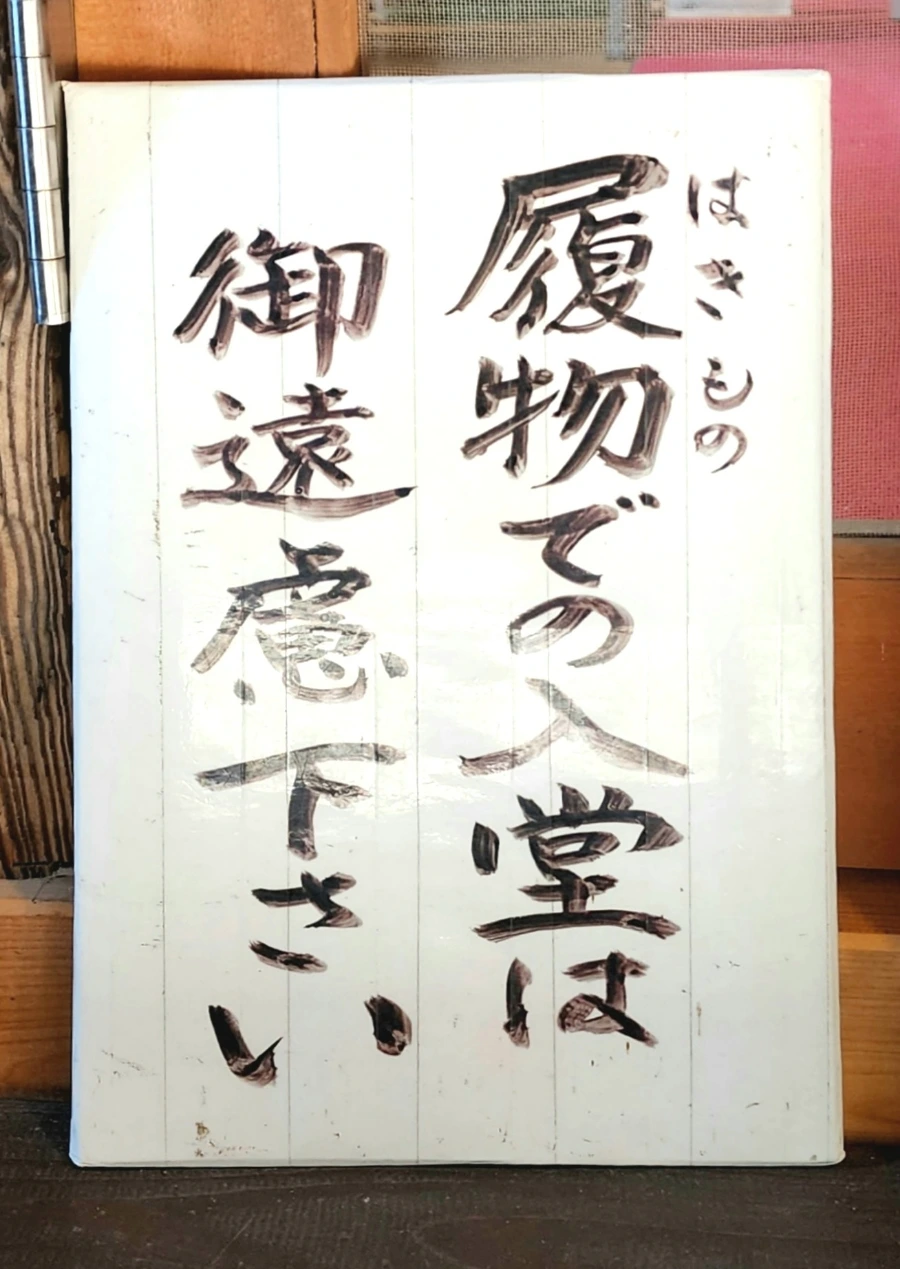 はきもの
履物での入堂は
御遠慮下さい